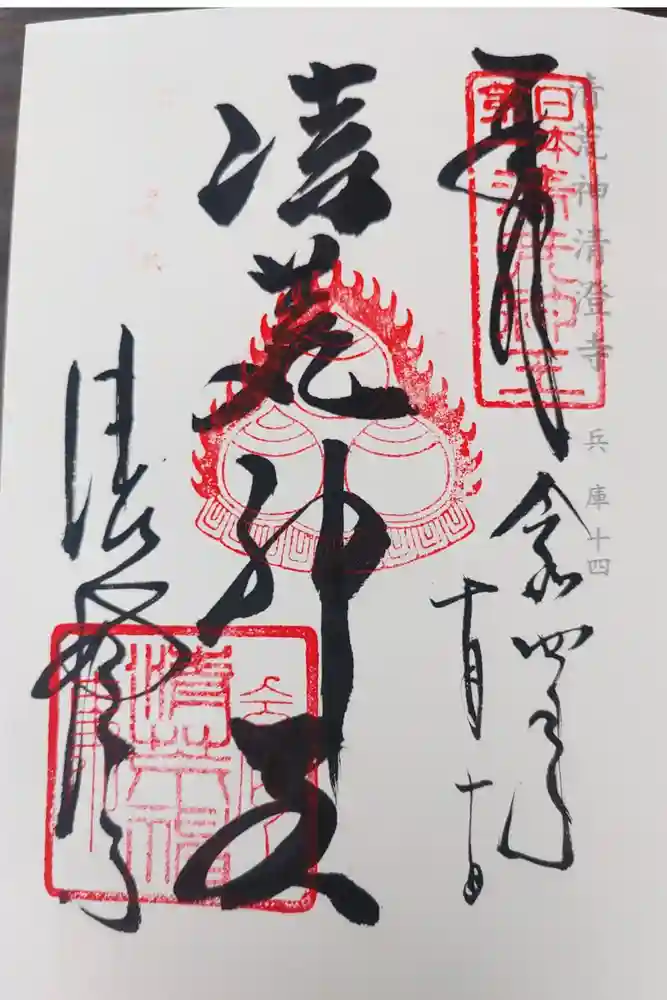 清荒神清澄寺 兵庫十四
奉拝
日本第一清荒神王
令和四年
十月
清荒神
清澄寺